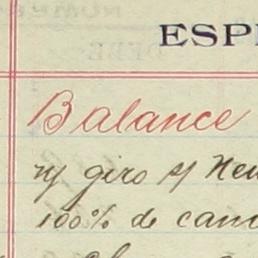 ESP
Balance
n/ giro s/ New
100% de cam